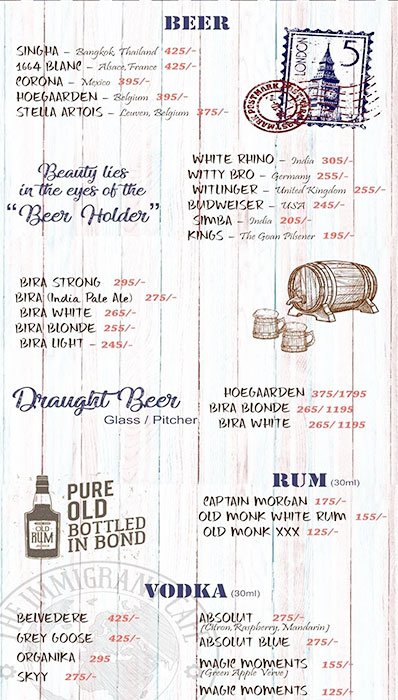 BEER
SINGHA – Bangkok, Thailand 425/-
1664 BLANC – Alsace, France 425/-
CORONA – Mexico 395/-
HOEGAARDEN – Belgium 395/-
STELLA ARTOIS – Leuven, Belgium 375/-
LONDON
5
Beauty lies
in the eyes of the
“Beer Holder”
WHITE RHINO – India 305/-
WITTY BRO – Germany 255/-
WITLINGER – United Kingdom 255/-
BUDWEISER – USA 245/-
SIMBA – India 205/-
KINGS – The Goan Pilsener 195/-
BIRA STRONG 295/-
BIRA (India Pale Ale) 275/-
BIRA WHITE 265/-
BIRA BLONDE 255/-
BIRA LIGHT – 245/-
Draught Beer
Glass / Pitcher
HOEGAARDEN 375/1795
BIRA BLONDE 265/ 1195
BIRA WHITE 265/ 1195
OLD
RUM
PURE
OLD
BOTTLED
IN BOND
RUM (30ml)
CAPTAIN MORGAN 175/-
OLD MONK WHITE RUM 155/-
OLD MONK XXX 125/-
THE IMMIGRANT CAFE
VODKA (30ml)
BELVEDERE 425/-
GREY GOOSE 425/-
ORGANIKA 295
SKYY 275/-
ABSOLUT 275/-
(Citron, Raspberry, Mandarin)
ABSOLUT BLUE 275/-
MAGIC MOMENTS 155/-
(Green Apple Verve)
MAGIC MOMENTS 125/-